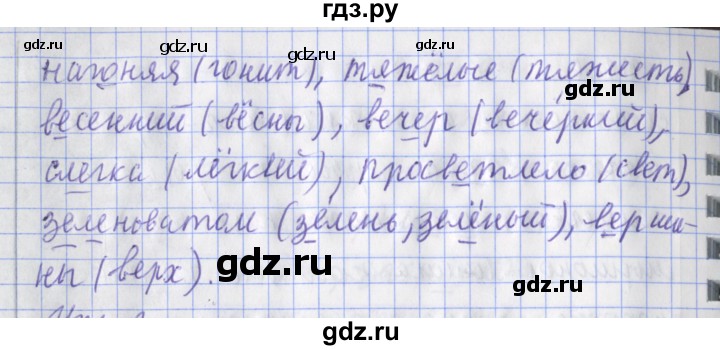 гдз.ру
gdz.ru gdz.ru gdz.ru
нагоняя (гонит), тяжёлые (тяжесть),
gdz.ru
весенний (вёсны), вечер (вечерний),
gdz.ru gdz.ru
слегка (лёгкий), просветлело (свет),
gdz.ru gdz.ru
зеленоватом (зелень, зелёный), верши-
ны (верх).
gdz.ru
gdz.ru gdz.ru
gdz.ru